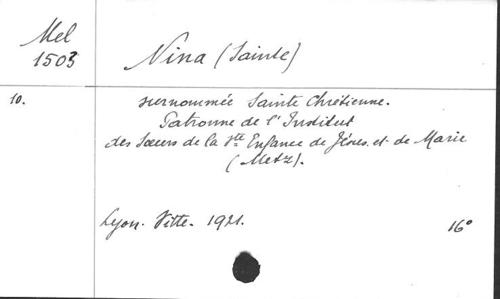 Mel
1503
Nina (Sainte)
10.
surnommée Sainte Chrétienne.
Patronne de l'Institut
des Sœurs de la Ste Enfance de Jésus et de Marie
(Metz).
Lyon. Vitte. 1921.
16°